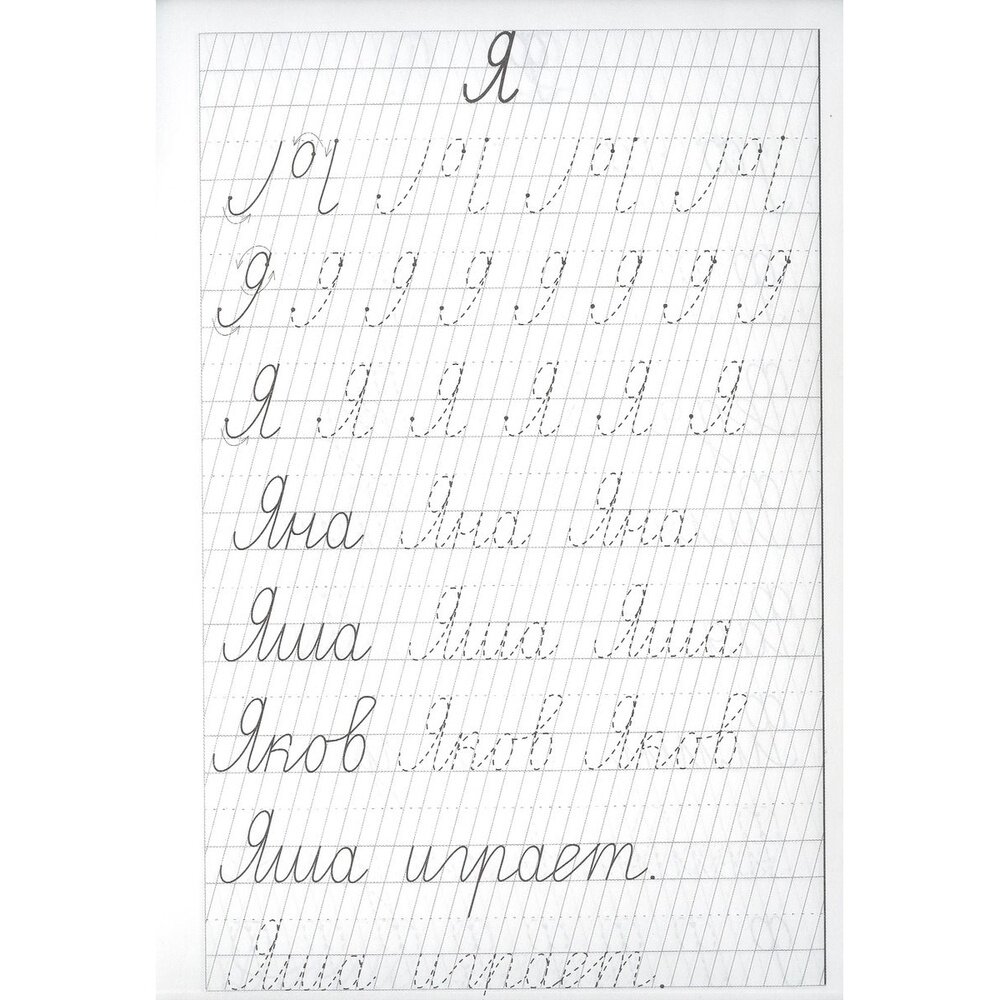 Я
Я Я Я Я Я Я
Яна Яна Яна
Яша Яша Яша
Яков Яков Яков
Яша играет.
Яша играет.